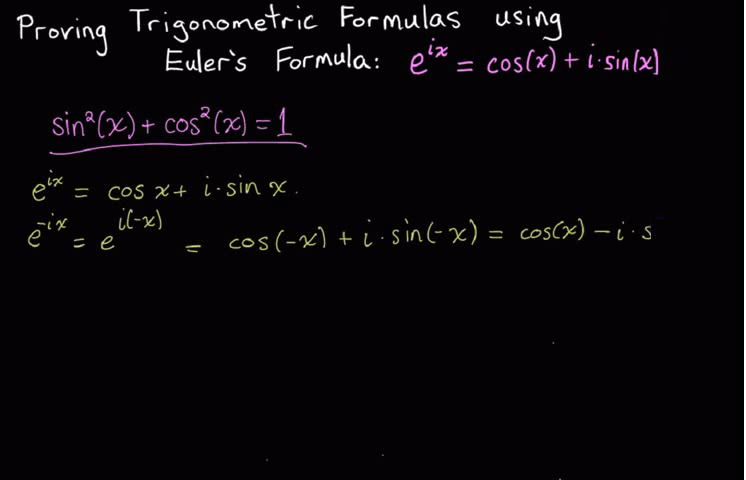 Proving Trigonometric Formulas using
Euler's Formula: e^{ix} = cos(x) + i·sin(x)
sin²(x) + cos²(x) = 1
e^{ix} = cos x + i·sin x.
e^{-ix} = e^{i(-x)} = cos(-x) + i·sin(-x) = cos(x) - i·s